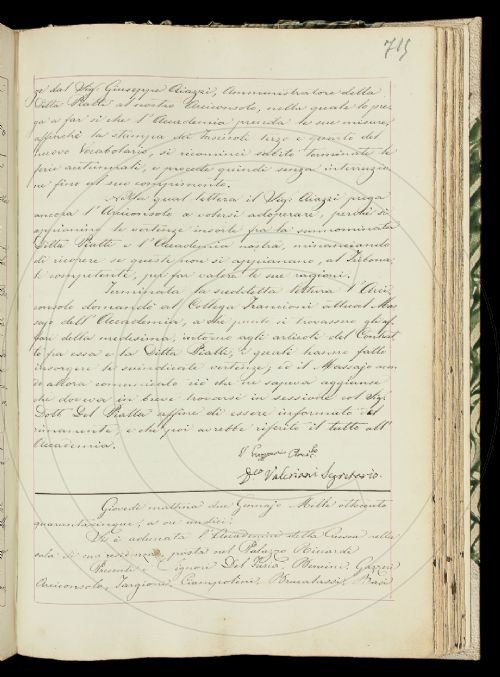 715
ze dal Sig. Giuseppe Aiazzi, Amministratore della
Ditta Piatti al nostro Arciconsolo, nella quale lo pre-
ga a far sì che l'Accademia prenda le sue misure,
affinchè la stampa dei Fascicoli terzo e quarto del
nuovo Vocabolario, si ricominci subito terminate le
ferie autunnali, e proceda quindi senza interruzio-
ne fino al suo compimento.
Nella qual lettera il Sig. Aiazzi prega
ancora l'Arciconsolo a volersi adoperare, perchè si
appianino le vertenze insorte fra la summominata
Ditta Piatti e l'Accademia nostra, minacciando
di ricorrere se queste non si appianano, al Tribuna-
le competente, per far valere le sue ragioni.
Terminata la suddetta lettura l'Arci-
consolo domandò al Collega Franciosi attual Mas-
sajo dell'Accademia, a che punto si trovassero gli af-
fari della medesima, intorno agli articoli del Contrat-
to fra essa e la Ditta Piatti, i quali hanno fatto
insorgere le suindicate vertenze; ed il Massajo aven-
do allora comunicato ciò che ne sapeva aggiunse,
che doveva in breve trovarsi in sessione col Sig.
Dott. Del Piatta affine di essere informato del
rimanente, e che poi avrebbe riferito il tutto all'
Accademia.
Valeriani Segretario
Giovedì mattina due Gennajo Mille ottocento
quarantacinque, a ore undici.
Si è adunata l'Accademia della Crusca nella
sala di sua residenza, posta nel Palazzo Riccardi
Presenti i Signori Del Furia, Bencini, Gazzeri
Arciconsolo, Targioni, Ciampolini, Brucalassi, Baci